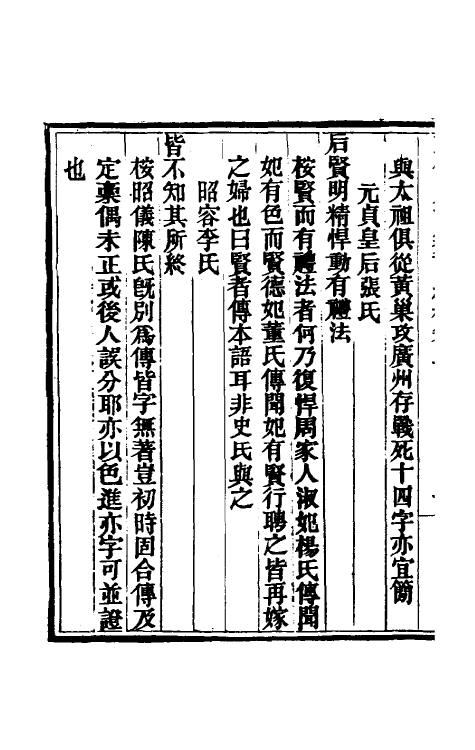 與太祖俱從黃巢攻廣州存戰死十四字亦宜簡
元貞皇后張氏
后賢明精悍動有禮法
桉賢而有禮法者何乃復悍周家人淑妃楊氏傳聞
妃有色而賢德妃董氏傳聞妃有賢行聘之皆再嫁
之婦也曰賢者傳本語耳非史氏與之
昭容李氏
皆不知其所終
桉昭儀陳氏旣別爲傳皆字無著豈初時固合傳及
定稾偶未正或後人誤分耶亦以色進亦字可並證
也